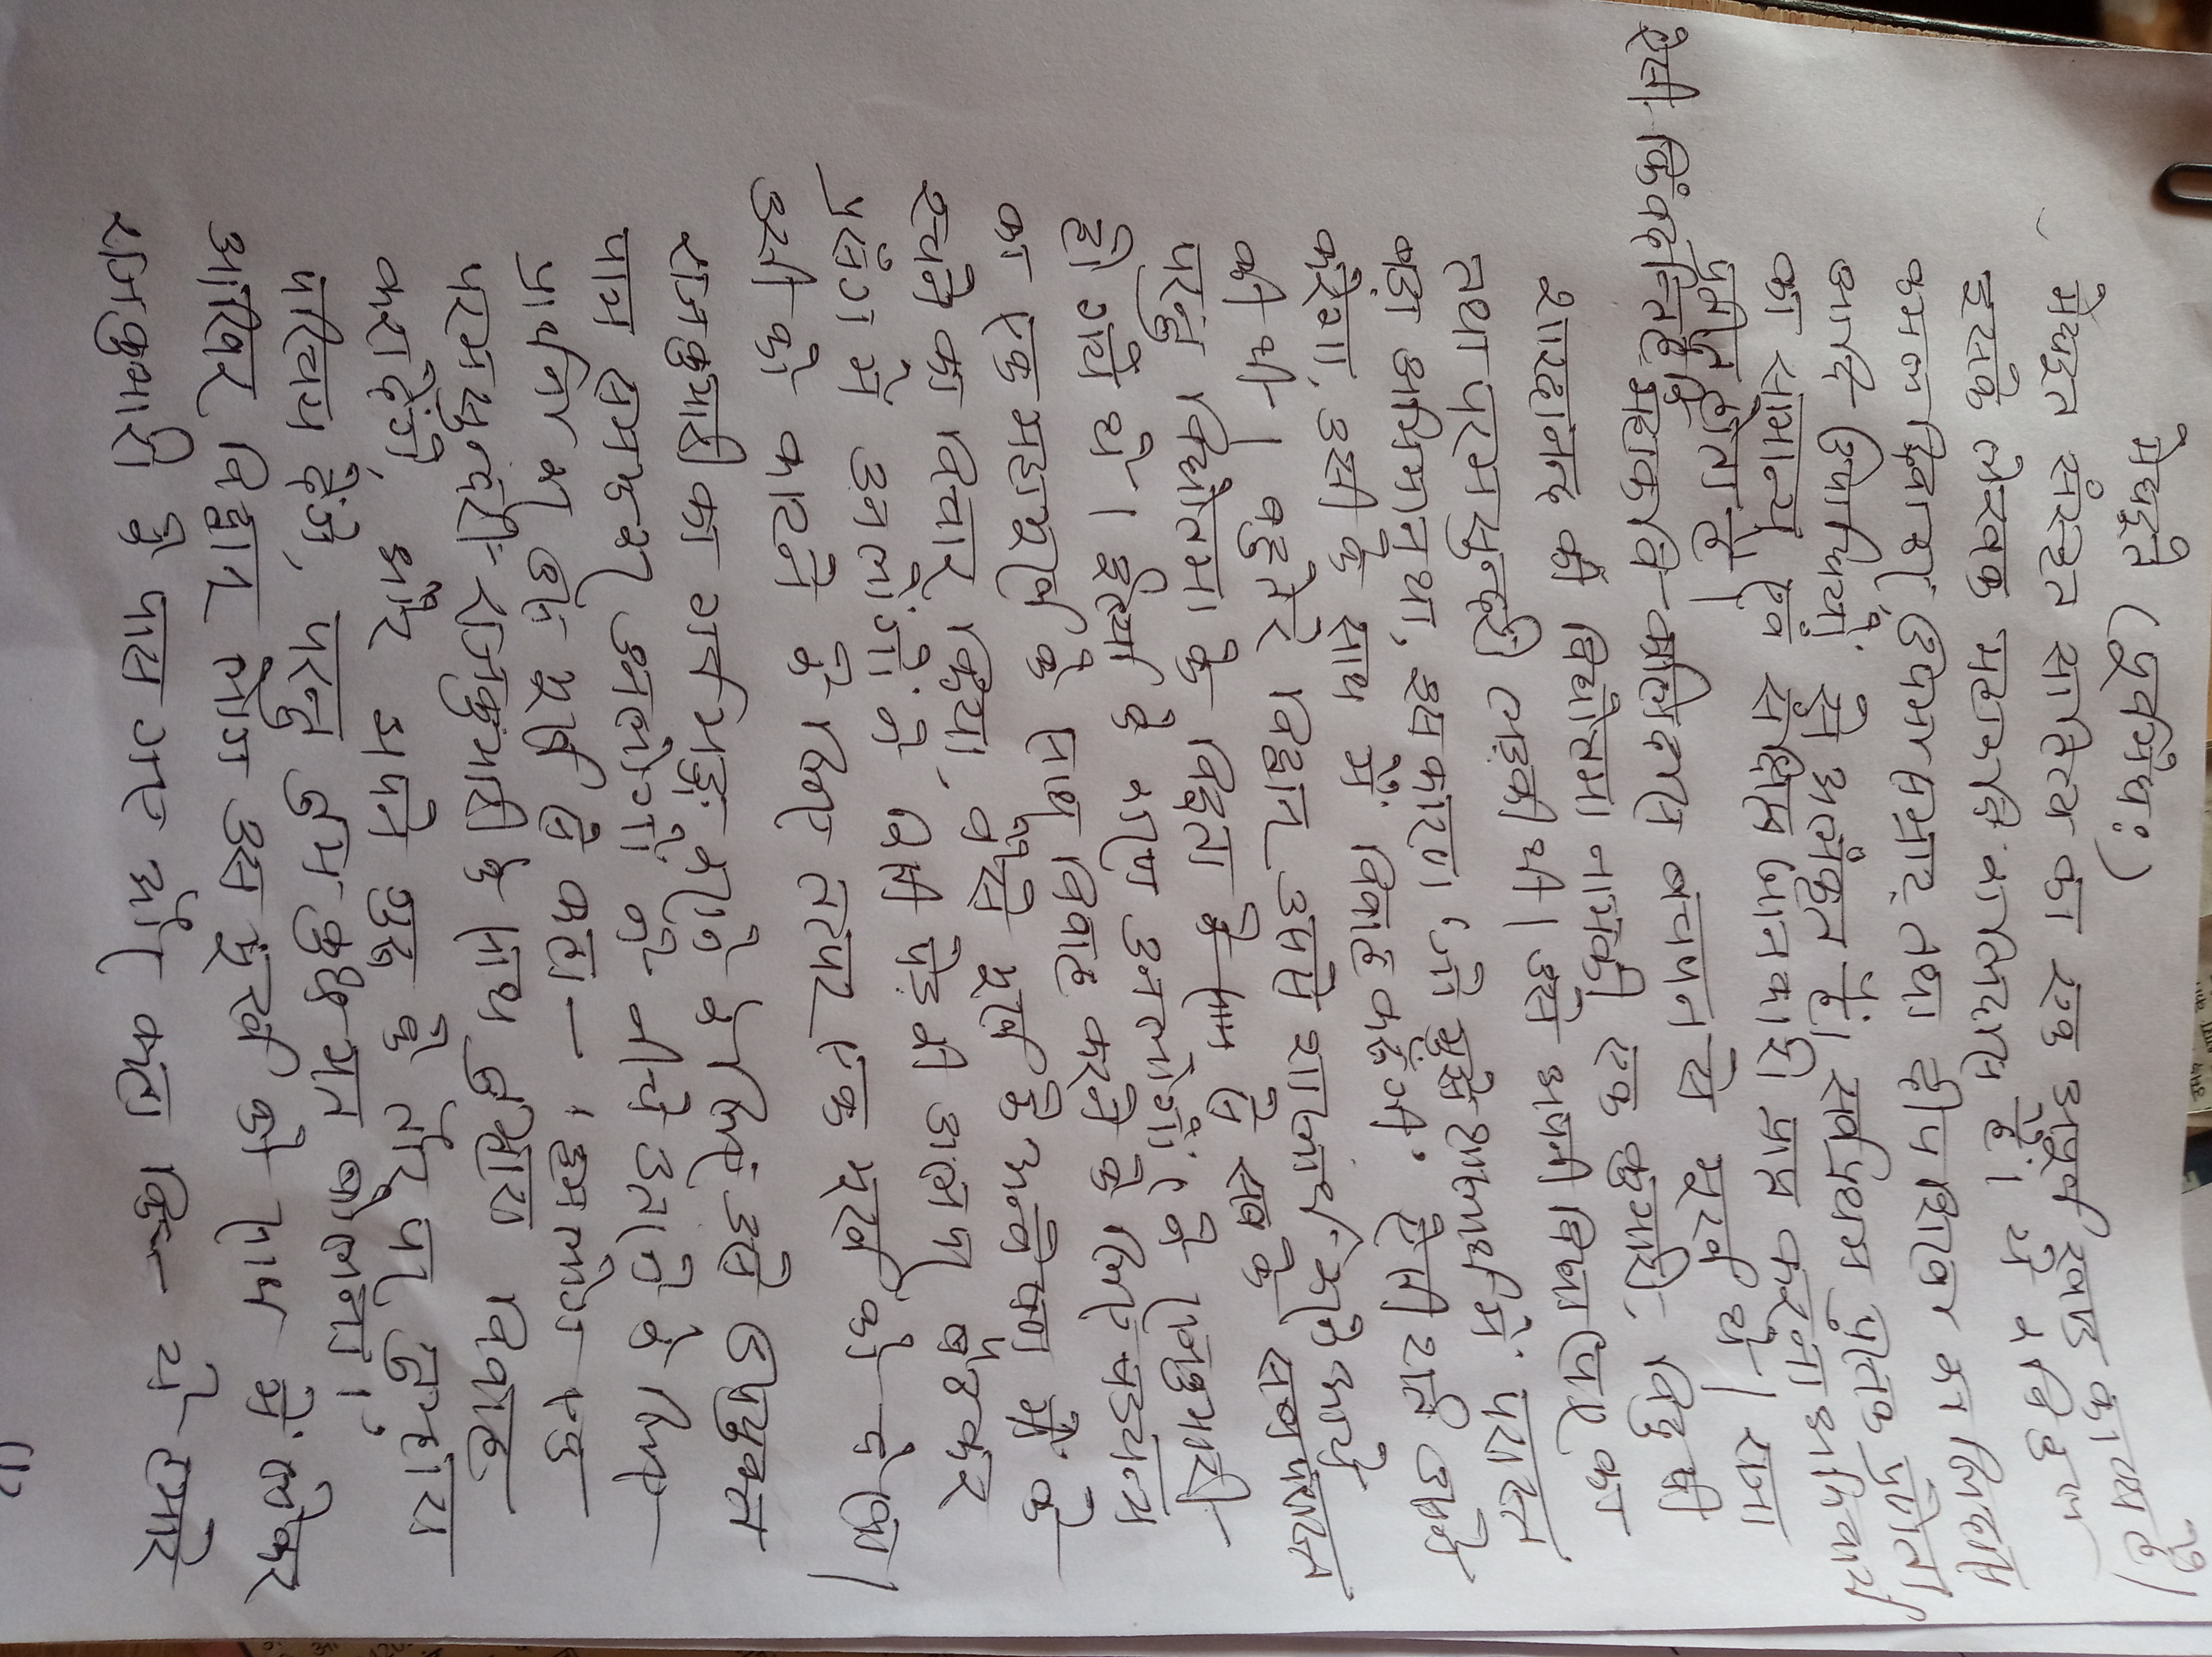 मेघदूते (पूर्वमेघः)
मेघदूत संस्कृत साहित्य का एक अपूर्व खण्ड काव्य है।
इसके लेखक महाकवि कालिदास हैं। ये कविकुल
कमल दिवाकर, उपमा सम्राट् तथा दीप शिखा कालिदास
आदि उपाधियों से अलंकृत हैं। सर्वप्रथम पुस्तक प्रणेता
का सामान्य एवं संक्षिप्त जानकारी प्राप्त करना अनिवार्य
प्रतीत होता है।
ऐसी किंवदन्ति है कि महाकवि कालिदास बचपन से मूर्ख थे। राजा
शारदानन्द की विद्योत्तमा नामकी एक कुमारी, विदुषी
तथा परम सुन्दरी लड़की थी। उसे अपनी विद्या पर का
बड़ा अभिमान था, इस कारण 'जो मुझे शास्त्रार्थ में परास्त
करेगा, उसी के साथ मैं विवाह करूँगी' ऐसी शर्त उसने
की थी। बहुतेरे विद्वान् उससे शास्त्रार्थ करने आये
परन्तु विद्योत्तमा के विद्वता के सामने सब के सब परास्त
हो गये थे। ईर्ष्या के कारण उन लोगों ने राजकुमारी
का एक महामूर्ख के साथ विवाह करने के लिए षडयन्त्र
रचने का विचार किया, वैसे मूर्ख के अन्वेषण के
प्रसंग में उनलोगों ने किसी पेड़ की डाल पर बैठकर
उसी को काटने के लिए तत्पर एक मूर्ख को देखा।
राजकुमारी का गर्व भङ्ग करने के लिए उसे उपयुक्त
पात्र समझकर उनलोगों ने नीचे उतारने के लिए
प्रार्थना कर उस मूर्ख से कहा- 'हमलोग एक
परम सुन्दरी राजकुमारी के साथ तुम्हारा विवाह
करा देंगे, और अपने गुरु के तौर पर तुम्हारा
परिचय देंगे, परन्तु तुम कुछ मत बोलना।'
आखिर विद्वान् लोग उस मूर्ख को साथ में लेकर
राजकुमारी के पास गए और कहा कि- ये हमारे